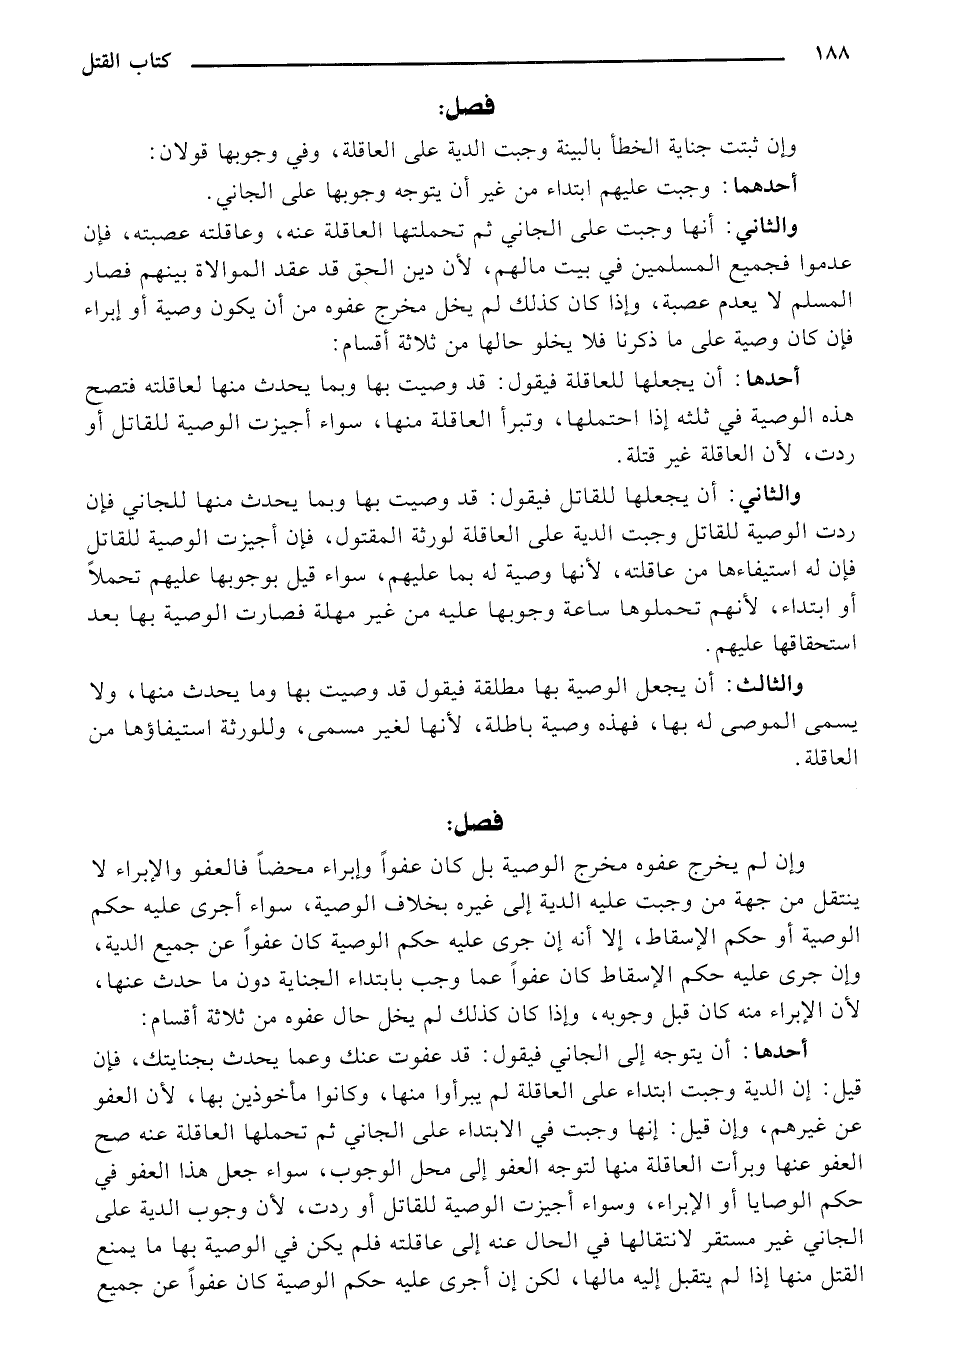 ١٨٨ كتاب القتل
فصل:
وإن ثبتت جناية الخطأ بالبينة وجبت الدية على العاقلة، وفي وجوبها قولان:
أحدهما: وجبت عليهم ابتداء من غير أن يتوجه وجوبها على الجاني.
والثاني: أنها وجبت على الجاني ثم تحملتها العاقلة عنه، وعاقلته عصبته، فإن
عدموا فجميع المسلمين في بيت مالهم، لأن دين الحق قد عقد الموالاة بينهم فصار
المسلم لا يعدم عصبة، وإذا كان كذلك لم يخل مخرج عفوه من أن يكون وصية أو إبراء
فإن كان وصية على ما ذكرنا فلا يخلو حالها من ثلاثة أقسام:
أحدها: أن يجعلها للعاقلة فيقول: قد وصيت بها وبما يحدث منها لعاقلته فتصح
هذه الوصية في ثلثه إذا احتملها، وتبرأ العاقلة منها، سواء أجيزت الوصية للقاتل أو
ردت، لأن العاقلة غير قتلة.
والثاني: أن يجعلها للقاتل فيقول: قد وصيت بها وبما يحدث منها للجاني فإن
ردت الوصية للقاتل وجبت الدية على العاقلة لورثة المقتول، فإن أجيزت الوصية للقاتل
فإن له استيفاءها من عاقلته، لأنها وصية له بما عليهم، سواء قيل بوجوبها عليهم تحملاً
أو ابتداء، لأنهم تحملوها ساعة وجوبها عليه من غير مهلة فصارت الوصية بها بعد
استحقاقها عليهم.
والثالث: أن يجعل الوصية بها مطلقة فيقول قد وصيت بها وما يحدث منها، ولا
يسمى الموصى له بها، فهذه وصية باطلة، لأنها لغير مسمى، وللورثة استيفاؤها من
العاقلة.
فصل:
وإن لم يخرج عفوه مخرج الوصية بل كان عفواً وإبراء محضاً فالعفو والإبراء لا
ينتقل من جهة من وجبت عليه الدية إلى غيره بخلاف الوصية، سواء أجرى عليه حكم
الوصية أو حكم الإسقاط، إلا أنه إن جرى عليه حكم الوصية كان عفواً عن جميع الدية،
وإن جرى عليه حكم الإسقاط كان عفواً عما وجب بابتداء الجناية دون ما حدث عنها،
لأن الإبراء منه كان قبل وجوبه، وإذا كان كذلك لم يخل حال عفوه من ثلاثة أقسام:
أحدها: أن يتوجه إلى الجاني فيقول: قد عفوت عنك وعما يحدث بجنايتك، فإن
قيل: إن الدية وجبت ابتداء على العاقلة لم يبرأوا منها، وكانوا مأخوذين بها، لأن العفو
عن غيرهم، وإن قيل: إنها وجبت في الابتداء على الجاني ثم تحملها العاقلة عنه صح
العفو عنها وبرأت العاقلة منها لتوجه العفو إلى محل الوجوب، سواء جعل هذا العفو في
حكم الوصايا أو الإبراء، وسواء أجيزت الوصية للقاتل أو ردت، لأن وجوب الدية على
الجاني غير مستقر لانتقالها في الحال عنه إلى عاقلته فلم يكن في الوصية بها ما يمنع
القتل منها إذا لم يتقبل إليه مالها، لكن إن أجرى عليه حكم الوصية كان عفواً عن جميع